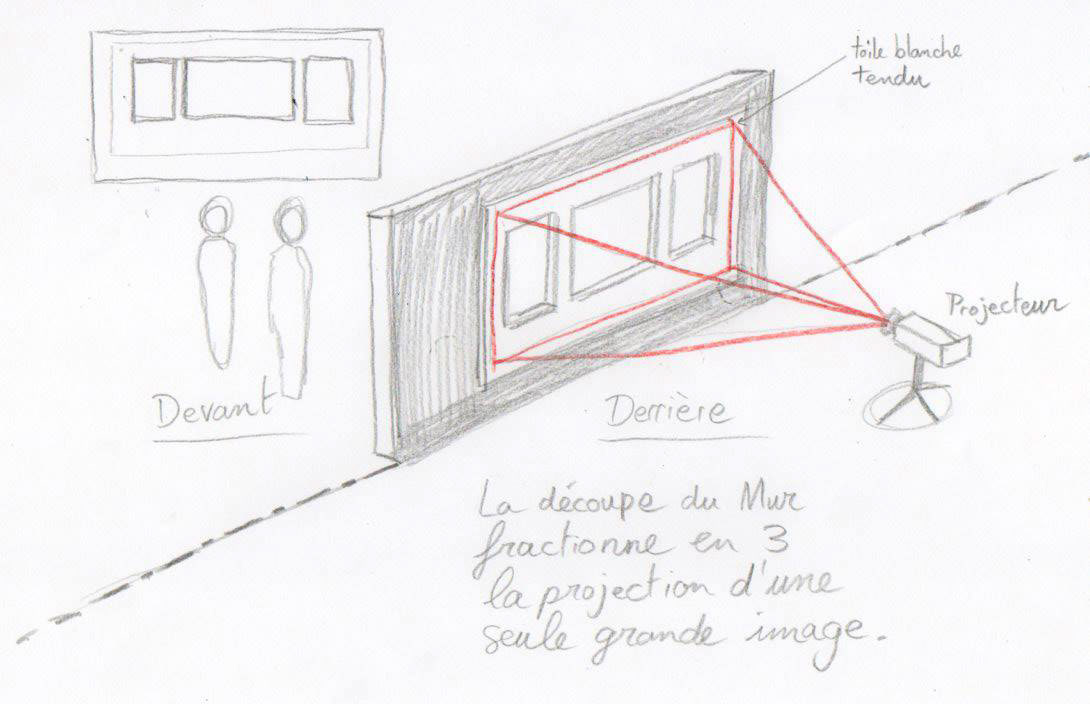 toile blanche
tendu
Projecteur
Devant
Derrière
La découpe du Mur
fractionne en 3
la projection d'une
seule grande image.